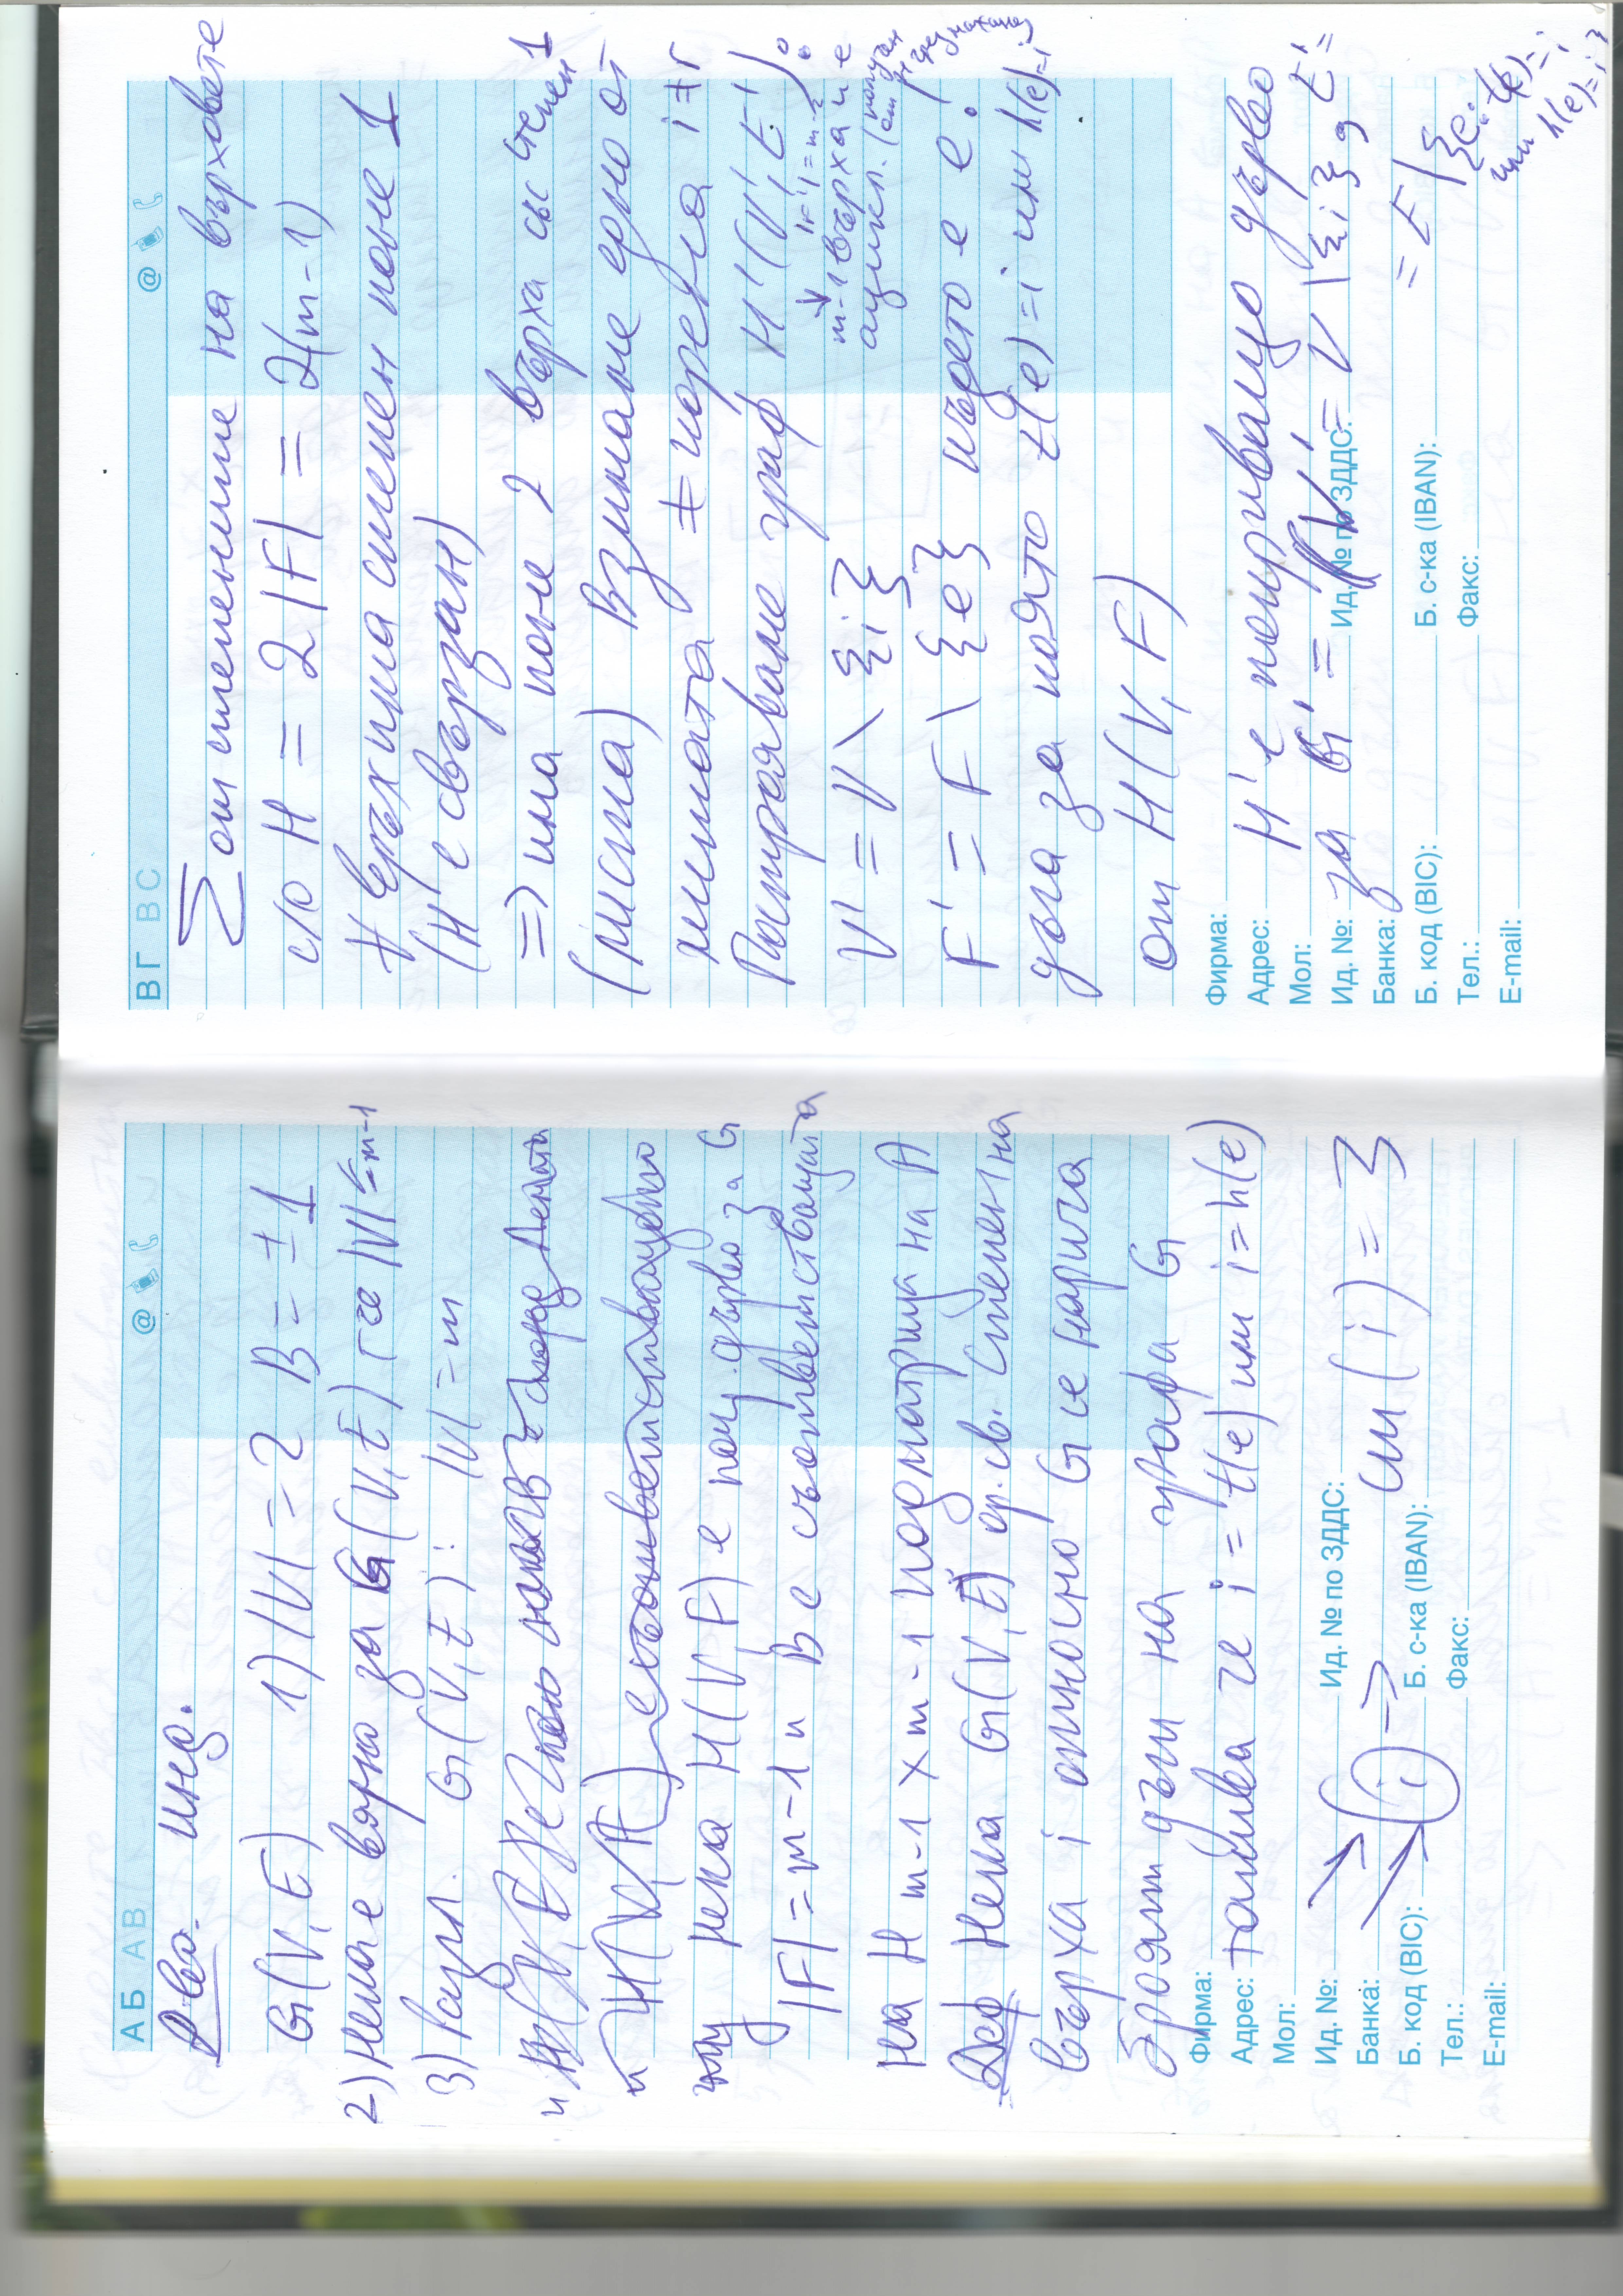 АБ АВ @
Д-во. инд.
G(V,E) 1) |V| = 2 B = ±1
2) Нека е вярно за G(V,E) где |V| ≤ m-1
3) Разгл. G(V,E): |V| = m
и
и H(V,F) съответстващо
нека H(V,F) е покр. дърво за G
|F| = m-1 и B е съответстващата
на H m-1 x m-1 подматрица на A
Деф Нека G(V,E) ор. св. Степен на
върха i относно G се нарича
броят дъги на графа G
такива че i = t(e) или i = h(e)
i → ст(i) = 3
Фирма:
Адрес:
Мол:
Ид. №: Ид. № по ЗДДС:
Банка:
Б. код (BIC): Б. с-ка (IBAN):
Тел.: Факс:
E-mail:
ВГ ВС @
Σ от степените на върховете
с/о H = 2|F| = 2(m-1)
∀ връх има степен поне 1
(H е свързан)
=> има поне 2 върха със степен 1
(листа) Взимаме едно от
листата ≠ корена i ≠ r
Построяваме граф H'(V',F')
|F'| = m-2
m-1 върха и е
ацикл.
V' = V \ {i}
F' = F \ {e} където e е
дъга за която t(e) = i или h(e) = i
от H(V,F)
H' е покриващо дърво
за G' = (V' = V \ {i}, E' =
= E \ {e: t(e) = i
или h(e) = i}
Фирма:
Адрес:
Мол:
Ид. №: Ид. № по ЗДДС:
Банка:
Б. код (BIC): Б. с-ка (IBAN):
Тел.: Факс:
E-mail: